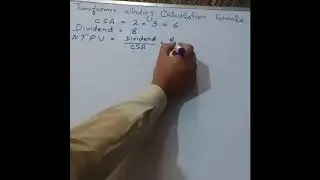 Transformer Winding Calculation Formula
CSA = 2 × 3 = 6
Dividend = 8
NTPV = Dividend / CSA = 8